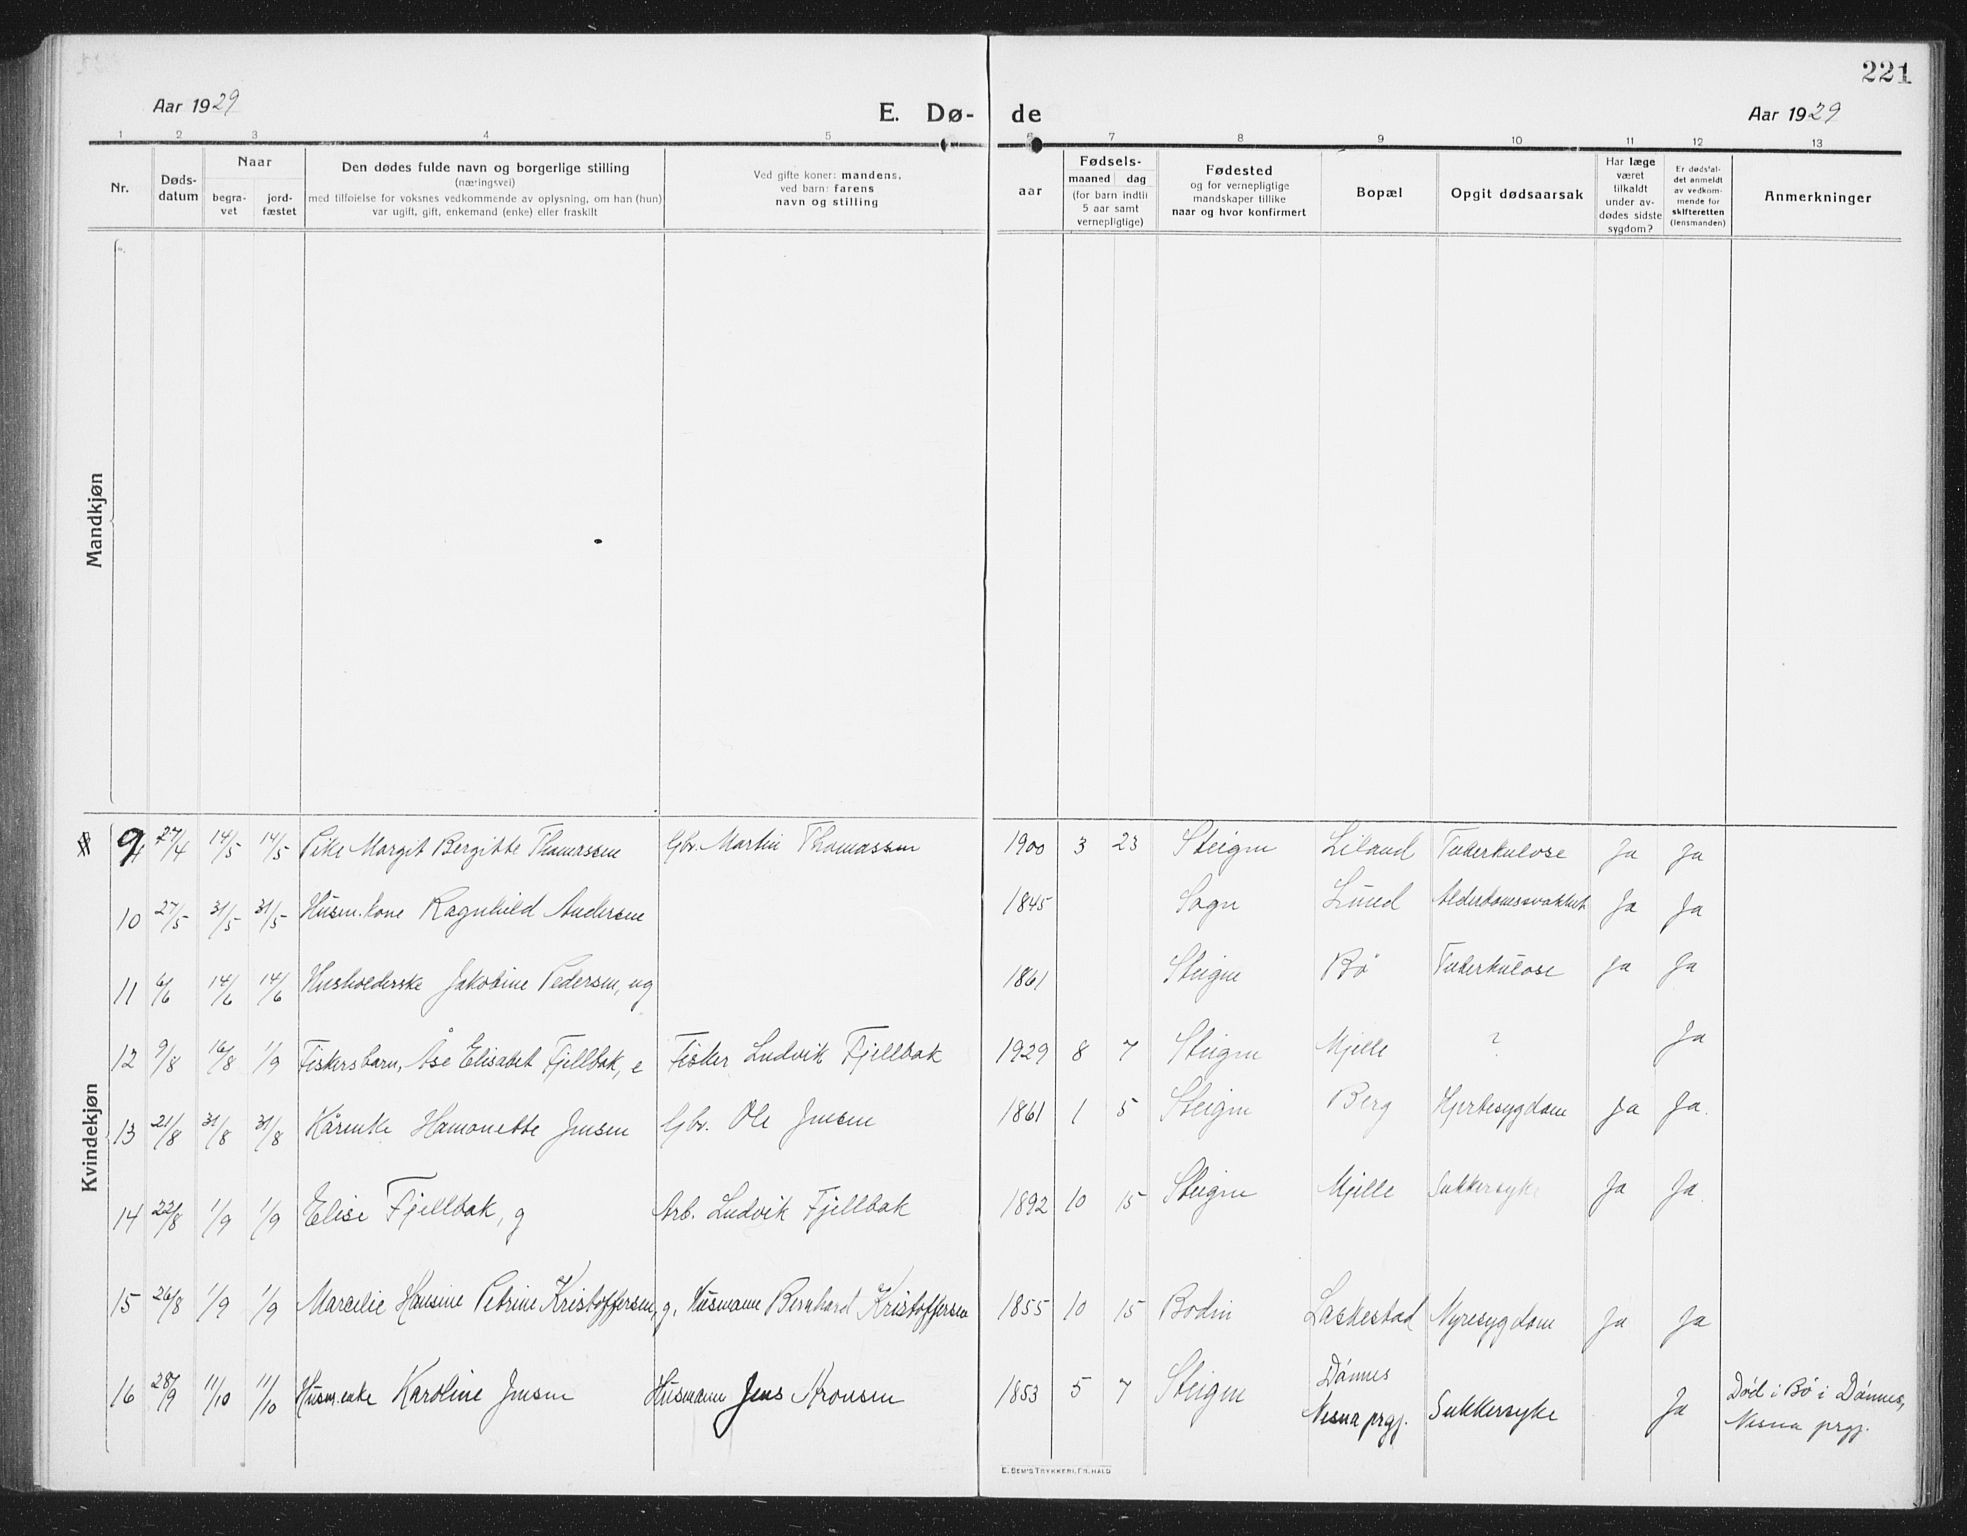 221
Aar 1929
E. Dø-
de
Aar 1929
1 2 3 4 5 6 7 8 9 10 11 12 13
Nr.
Døds-
datum
Naar
begra-
vet
jord-
fæstet
Den dødes fulde navn og borgerlige stilling
(næringsvei)
med tilføielse for voksnes vedkommende av oplysning, om han (hun)
var ugift, gift, enkemand (enke) eller fraskilt
Ved gifte koner: mandens,
ved barn: farens
navn og stilling
aar
Fødsels-
maaned dag
(for barn indtil
5 aar samt
vernepligtige)
Fødested
og for vernepligtige
mandskaper tillike
naar og hvor konfirmert
Bopæl
Opgit dødsaarsak
Har læge
været
tilkaldt
under av-
dødes sidste
sygdom?
Er dødsfal-
det anmeldt
av vedkom-
mende for
skifteretten
(lensmanden)
Anmerkninger
Mandkjøn
Kvindekjøn
9 27/4 14/5 14/5 Pike Margit Bergitte Thomassen Gbr. Martin Thomassen 1900 3 23 Steigen Liland Tuberkulose Ja Ja
10 27/5 31/5 31/5 Husm.kone Ragnhild Andersen 1845 Sogn Lund Alderdomssvakhet Ja Ja
11 6/6 14/6 14/6 Husholderske Jakobine Pedersen, ug 1861 Steigen Bø Tuberkulose Ja Ja
12 9/8 16/8 1/9 Fiskersbarn, Åse Elisabet Fjellbak, e Fisker Ludvik Fjellbak 1929 8 7 Steigen Mjelle ? Ja
13 21/8 31/8 31/8 Kårenke Hamonette Jensen Gbr. Ole Jensen 1861 1 5 Steigen Berg Hjertesygdom Ja Ja.
14 22/8 1/9 1/9 Elise Fjellbak, g Arb. Ludvik Fjellbak 1892 10 15 Steigen Mjelle Sukkersyke Ja Ja.
15 26/8 1/9 1/9 Marcelie Hansine Petrine Kristoffersen, g. Husmann Bernhard Kristoffersen 1855 10 15 Bodin Laskestad Nyresygdom Ja Ja
16 28/9 11/10 11/10 Husm.enke Karoline Jensen Husmann Jens Aronsen 1853 5 7 Steigen Dønnes
Nesna prgj. Sukkersyke Ja Død i Bø i Dønnes,
Nesna prgj.
E. SEM'S TRYKKERI, FR.HALD